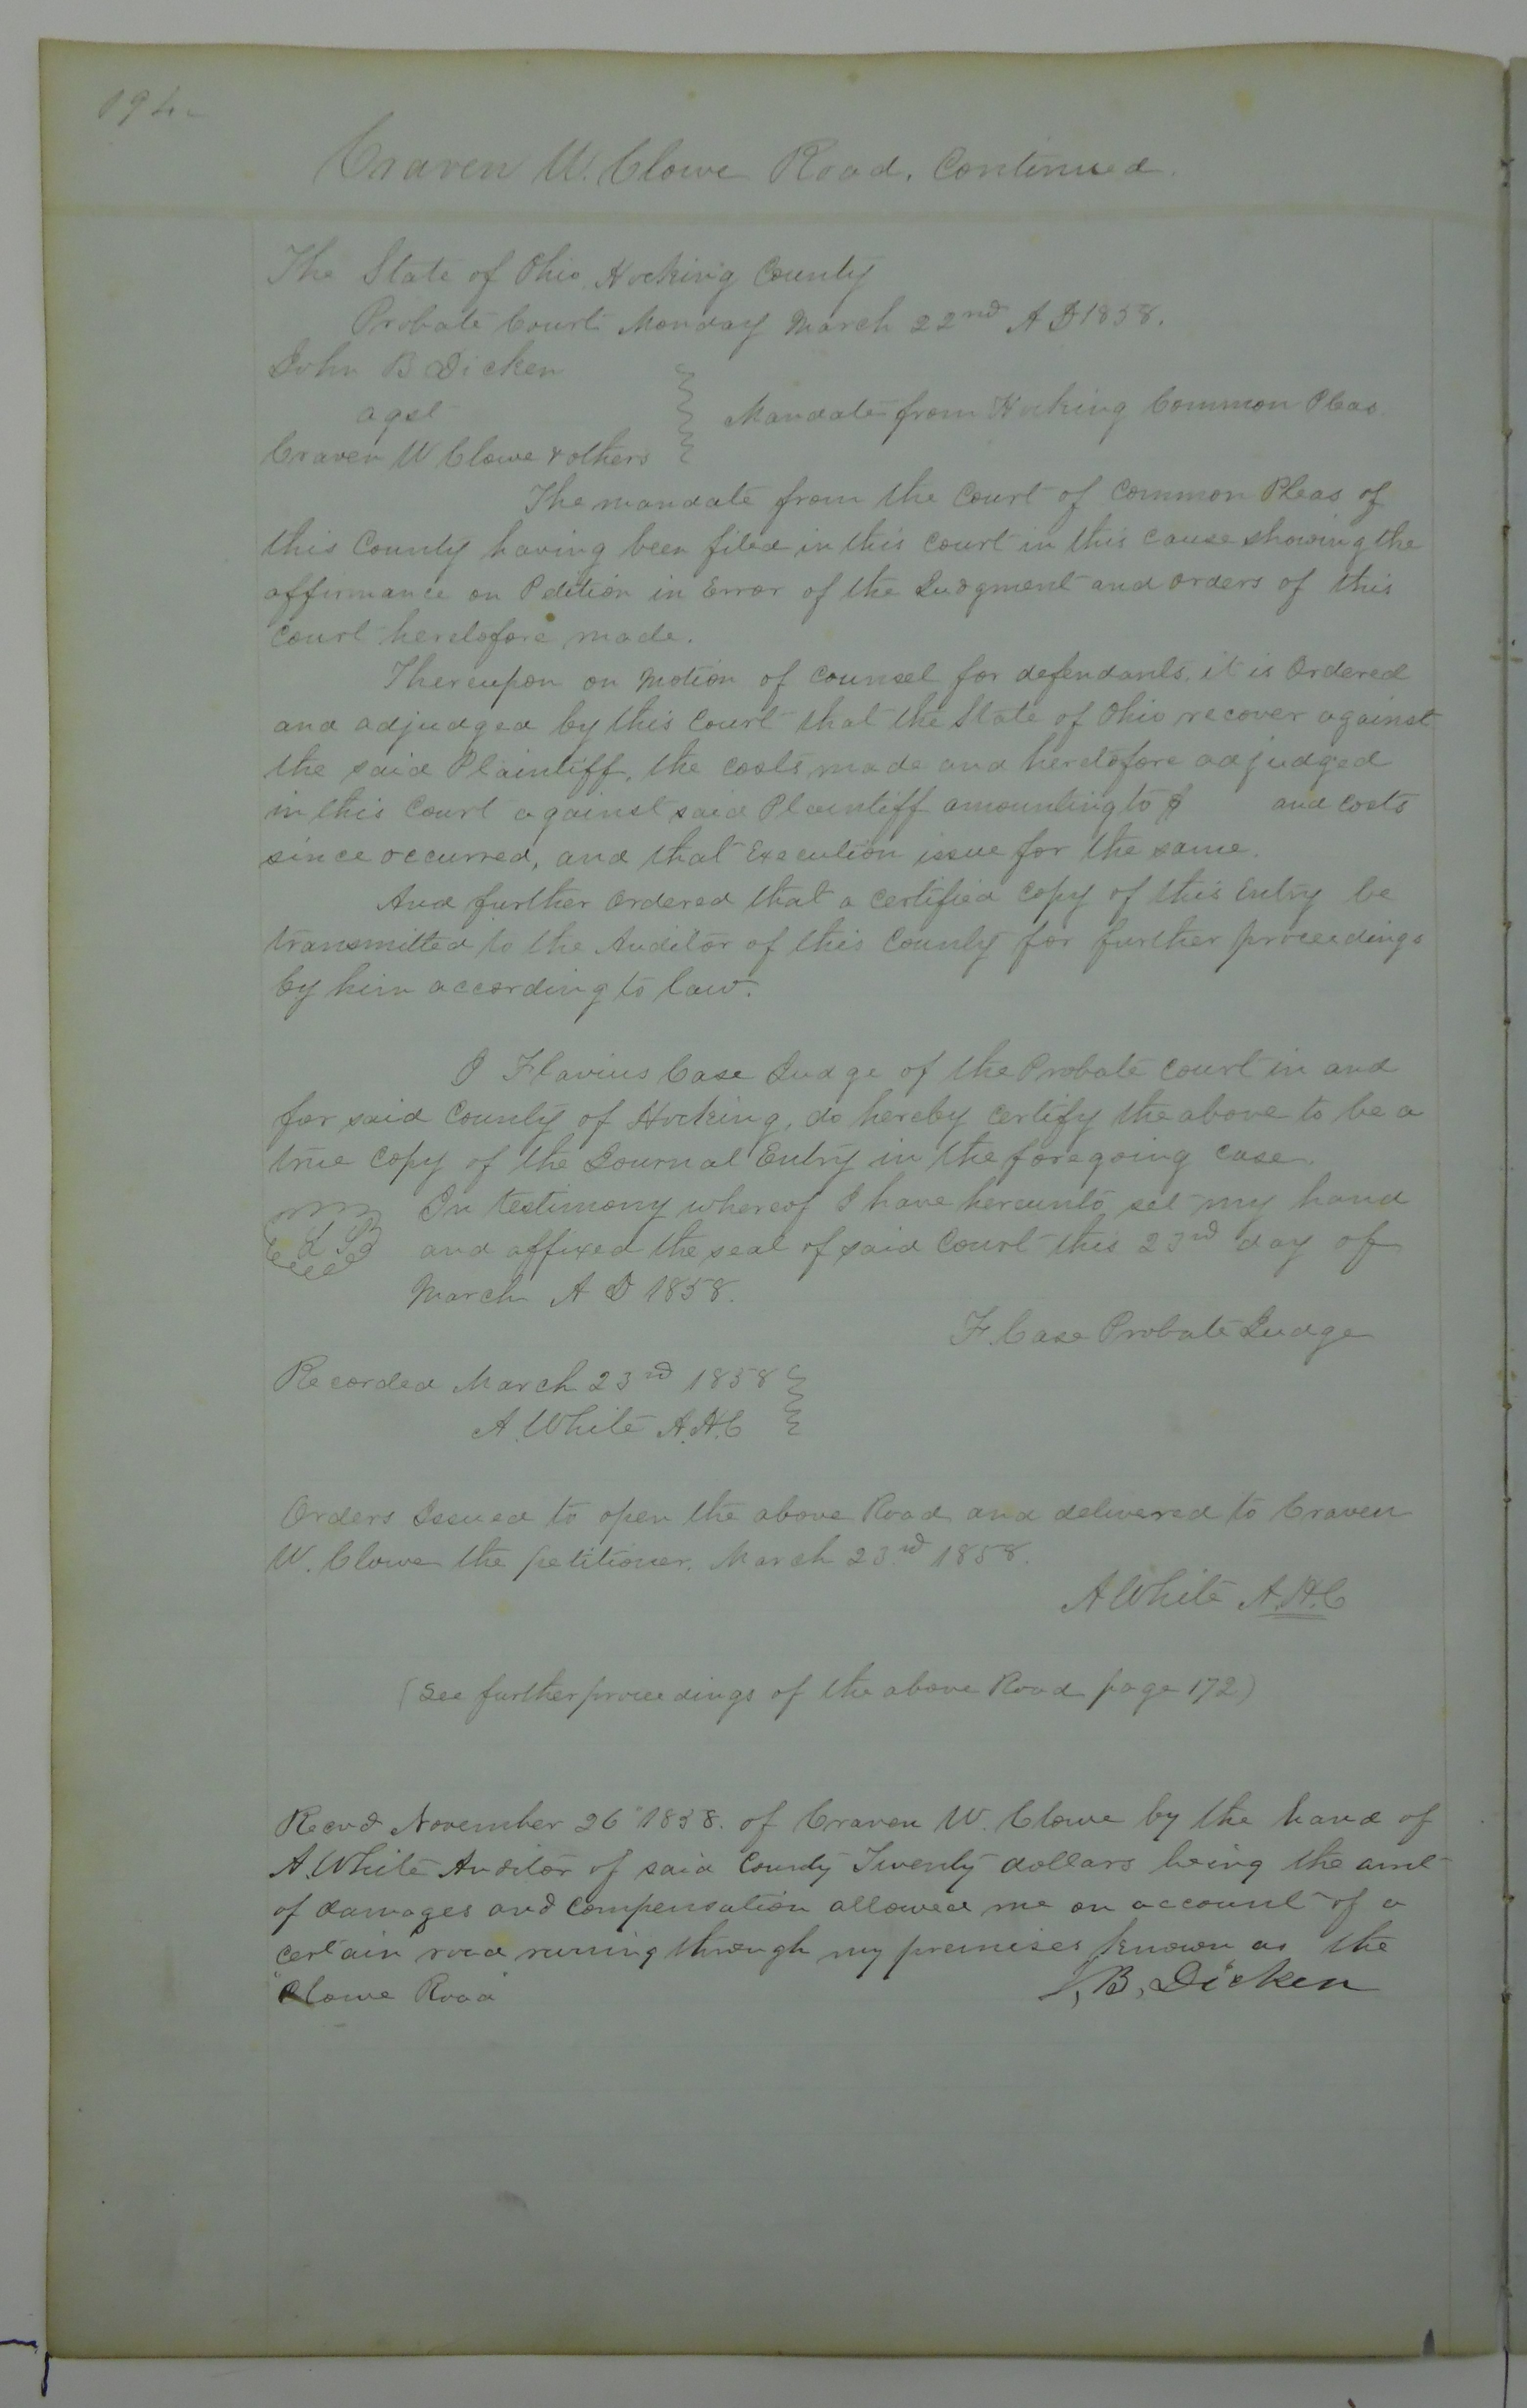 194
Craven W. Clowe Road. Continued.
The State of Ohio Hocking County
Probate Court Monday March 22nd A D 1858.
John B Dicken
agst
Craven W Clowe & others
Mandate from Hocking Common Pleas.
The mandate from the Court of Common Pleas of
this County having been filed in this Court in this cause showing the
affirmance on Petition in Error of the Judgment and orders of this
Court heretofore made.
Thereupon on motion of counsel for defendants, it is Ordered
and adjudged by this Court that the State of Ohio recover against
the said Plaintiff, the costs made and heretofore adjudged
in this Court against said Plaintiff amounting to $ and costs
since occurred, and that Execution issue for the same.
And further Ordered that a certified copy of this Entry be
transmitted to the Auditor of this County for further proceedings
by him according to law.
I Flavius Case Judge of the Probate Court in and
for said County of Hocking, do hereby certify the above to be a
true copy of the Journal Entry in the foregoing case.
In testimony whereof I have hereunto set my hand
L S
and affixed the seal of said Court this 23rd day of
March A D 1858.
F Case Probate Judge
Recorded March 23rd 1858
A. White A.H.C
Orders Issued to open the above Road and delivered to Craven
W. Clowe the petitioner. March 23rd 1858.
A White A.H.C
(See further proceedings of the above Road page 172)
Recvd November 26" 1858. of Craven W. Clowe by the hand of
A. White Auditor of said County Twenty dollars being the amt
of damages and compensation allowed me on account of a
certain road runing through my premises known as the
"Clowe Road"
J, B, Dicken